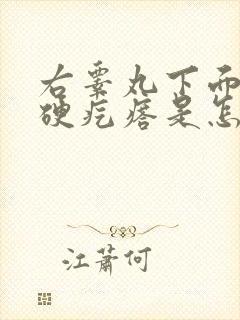 右睾丸下而
硬疙瘩是怎
江萧何